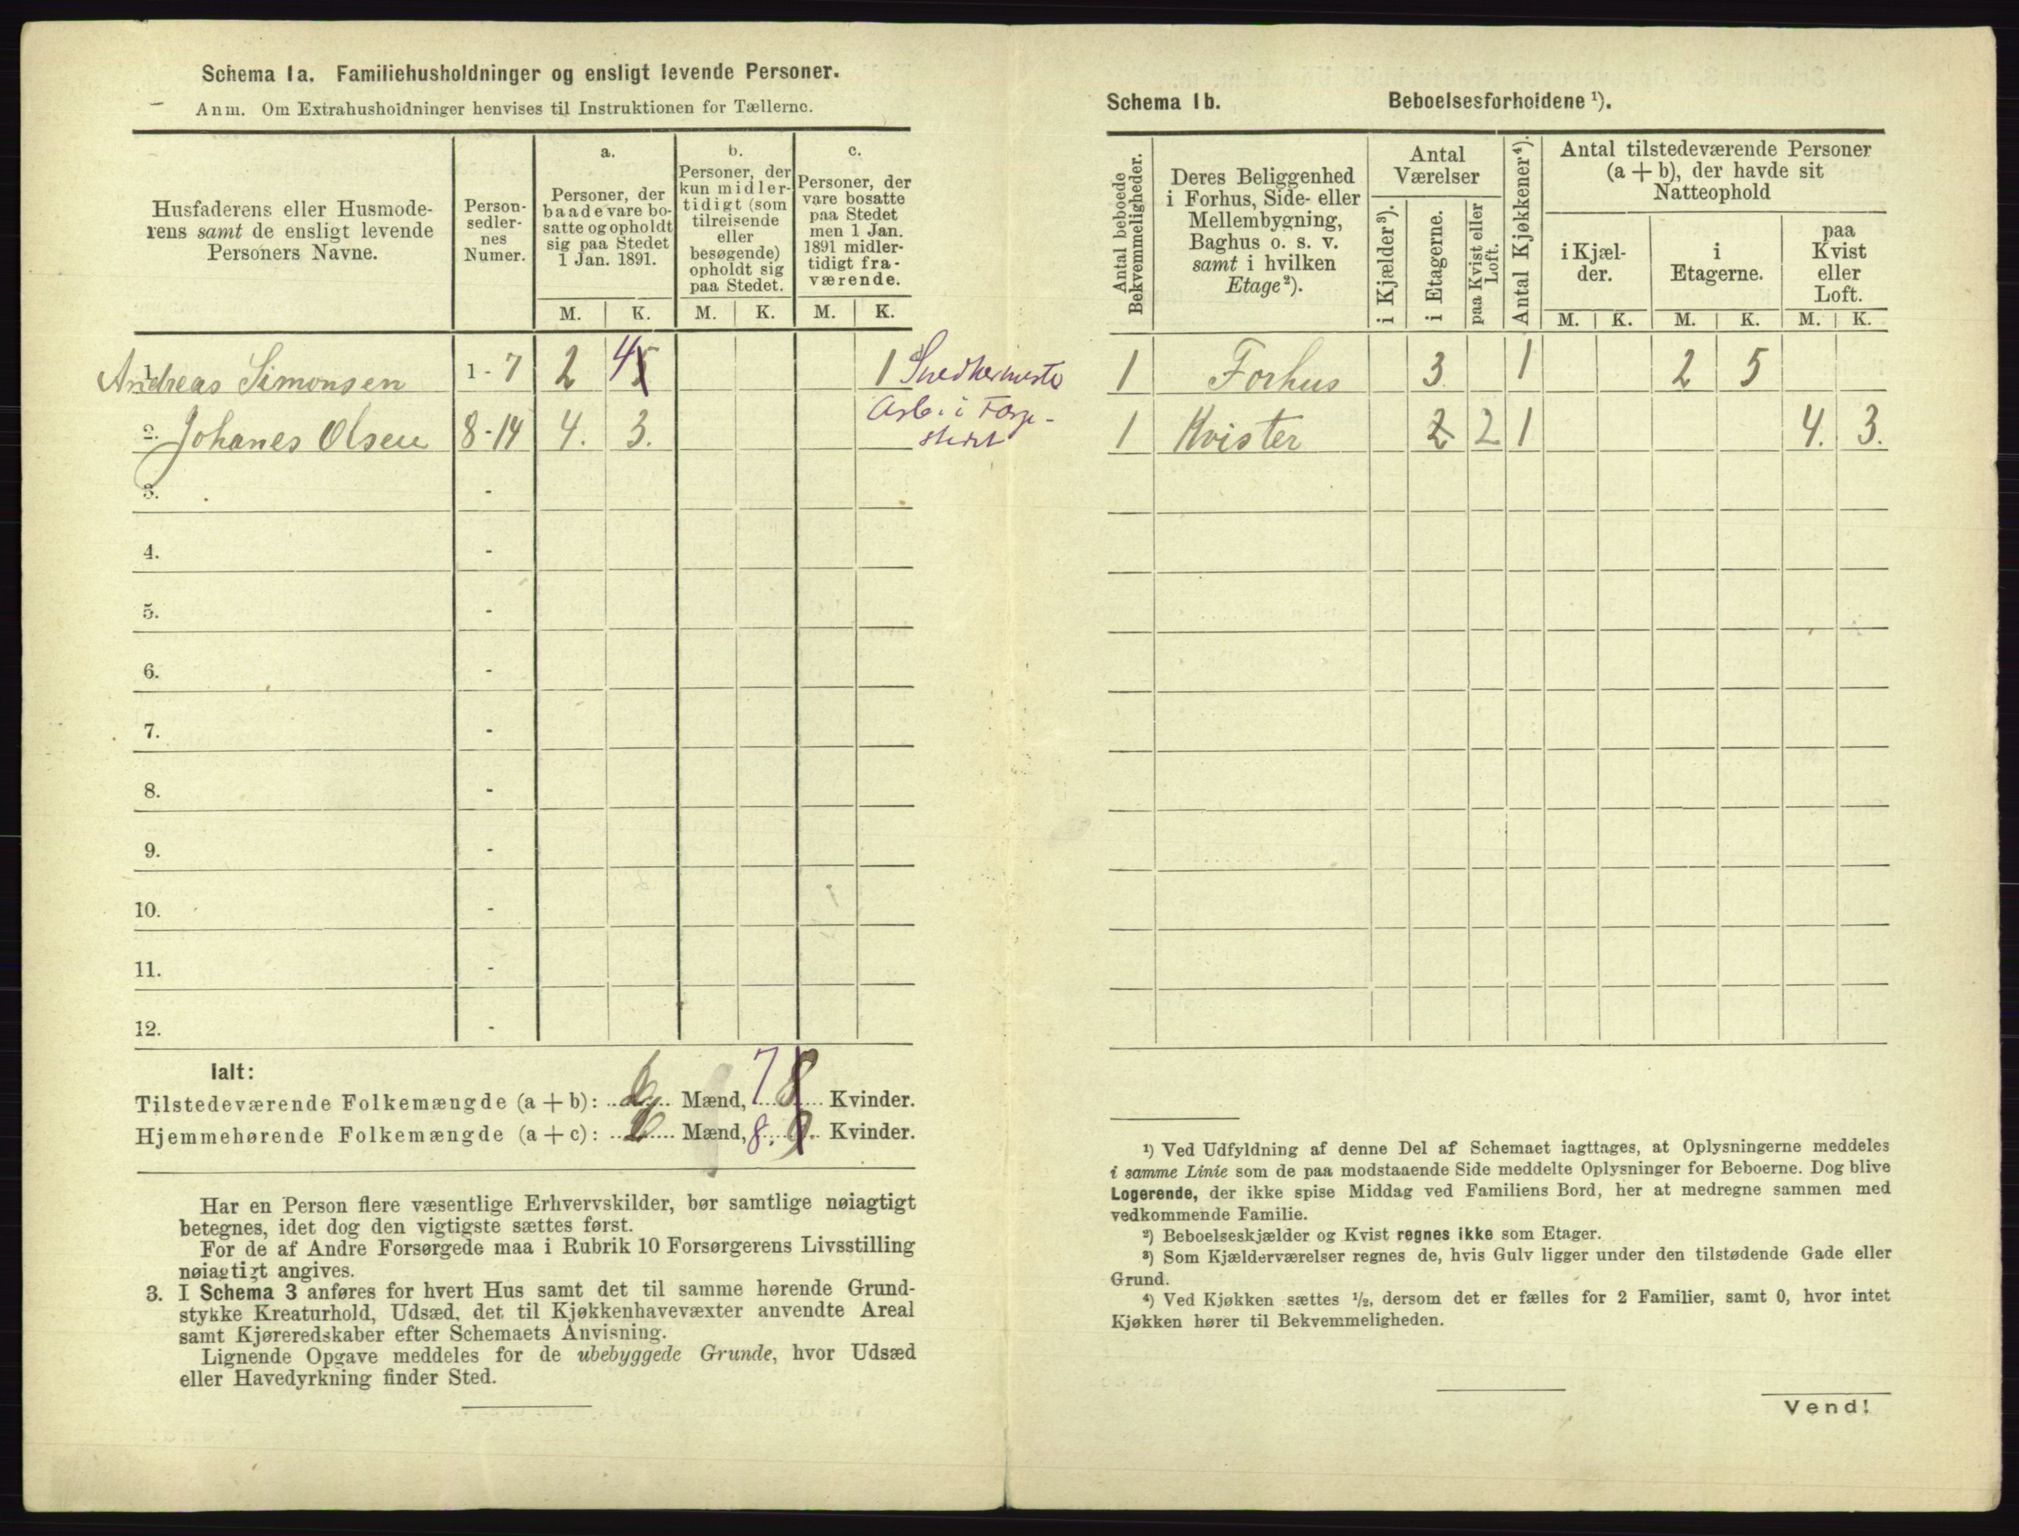 Schema 1a. Familiehusholdninger og ensligt levende Personer.
Anm. Om Extrahusholdninger henvises til Instruktionen for Tællerne.
Husfaderens eller Husmode-
rens samt de ensligt levende
Personers Navne.
Person-
sedler-
nes
Numer.
a.
Personer, der
baade vare bo-
satte og opholdt
sig paa Stedet
1 Jan. 1891.
b.
Personer, der
kun midler-
tidigt (som
tilreisende
eller
besøgende)
opholdt sig
paa Stedet.
c.
Personer, der
vare bosatte
paa Stedet
men 1 Jan.
1891 midler-
tidigt fra-
værende.
M. K. M. K. M. K.
1. Andreas Simonsen 1 - 7 2 4 5 1 Snedkermester
2. Johanes Olsen 8 - 14 4. 3. Arb. i
3. -
4. -
5. -
6. -
7. -
8. -
9. -
10. -
11. -
12. -
Ialt:
Tilstedeværende Folkemængde (a + b): 6 Mænd, 7 8 Kvinder.
Hjemmehørende Folkemængde (a + c): 6 Mænd, 8. 9 Kvinder.
Har en Person flere væsentlige Erhvervskilder, bør samtlige nøiagtigt
betegnes, idet dog den vigtigste sættes først.
For de af Andre Forsørgede maa i Rubrik 10 Forsørgerens Livsstilling
nøiagtigt angives.
3. I Schema 3 anføres for hvert Hus samt det til samme hørende Grund-
stykke Kreaturhold, Udsæd, det til Kjøkkenhavevæxter anvendte Areal
samt Kjøreredskaber efter Schemaets Anvisning.
Lignende Opgave meddeles for de ubebyggede Grunde, hvor Udsæd
eller Havedyrkning finder Sted.
Schema 1b. Beboelsesforholdene ¹).
Antal beboede
Bekvemmeligheder.
Deres Beliggenhed
i Forhus, Side- eller
Mellembygning,
Baghus o. s. v.
samt i hvilken
Etage²).
Antal
Værelser
i Kjælder³).
i Etagerne.
paa Kvist eller
Loft.
Antal Kjøkkener⁴).
Antal tilstedeværende Personer
(a + b), der havde sit
Natteophold
i Kjæl-
der.
i
Etagerne.
paa
Kvist
eller
Loft.
M. K. M. K. M. K.
1 Forhus 3 1 2 5
1 Kvister 2 2 1 4. 3.
¹) Ved Udfyldning af denne Del af Schemaet iagttages, at Oplysningerne meddeles
i samme Linie som de paa modstaaende Side meddelte Oplysninger for Beboerne. Dog blive
Logerende, der ikke spise Middag ved Familiens Bord, her at medregne sammen med
vedkommende Familie.
²) Beboelseskjælder og Kvist regnes ikke som Etager.
³) Som Kjælderværelser regnes de, hvis Gulv ligger under den tilstødende Gade eller
Grund.
⁴) Ved Kjøkken sættes ¹/₂, dersom det er fælles for 2 Familier, samt 0, hvor intet
Kjøkken hører til Bekvemmeligheden.
Vend!